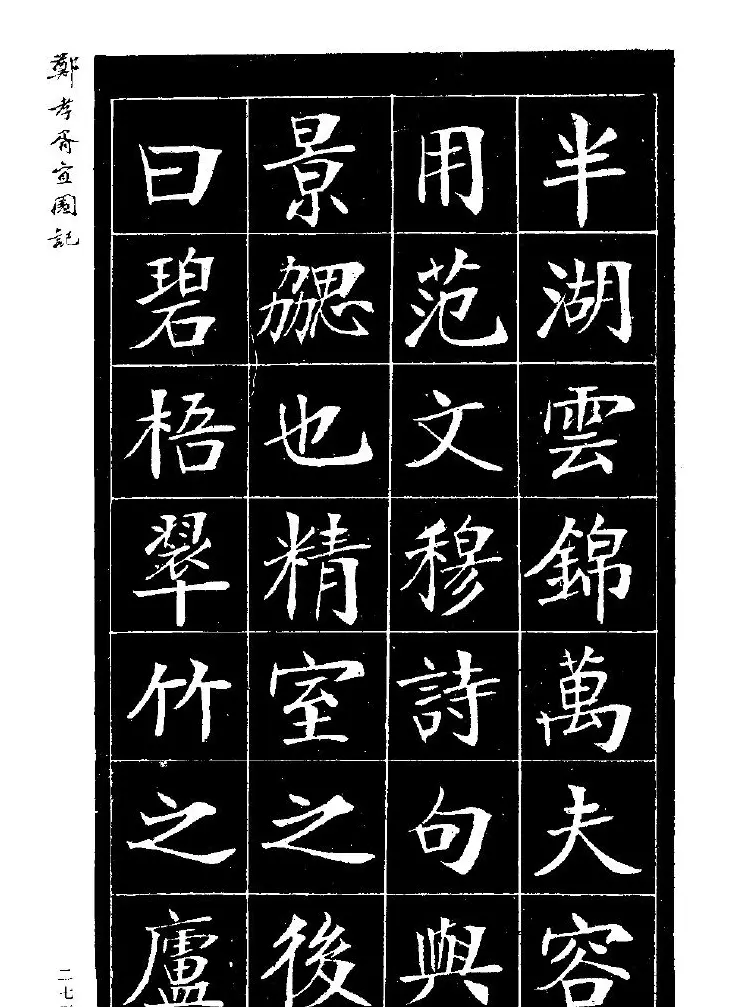 半湖雲錦萬夫容
用范文穆詩句與
景勰也精室之後
曰碧梧翠竹之廬
鄭孝胥宜園記
二七